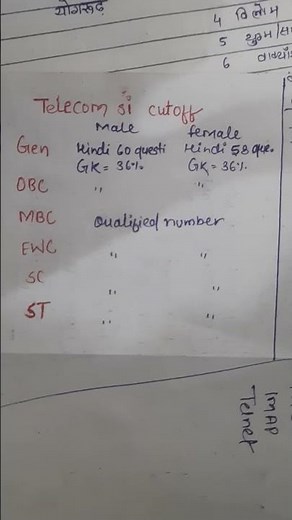 योगरूढ़
4 विलोम
5 युग्म
6
Telecom si cutoff
Male female
Gen Hindi 60 questi Hindi 58 que.
GK = 36%. GK = 36%.
OBC " "
MBC Qualified number
EWC " "
SC " "
ST " "
IMAP
Telnet